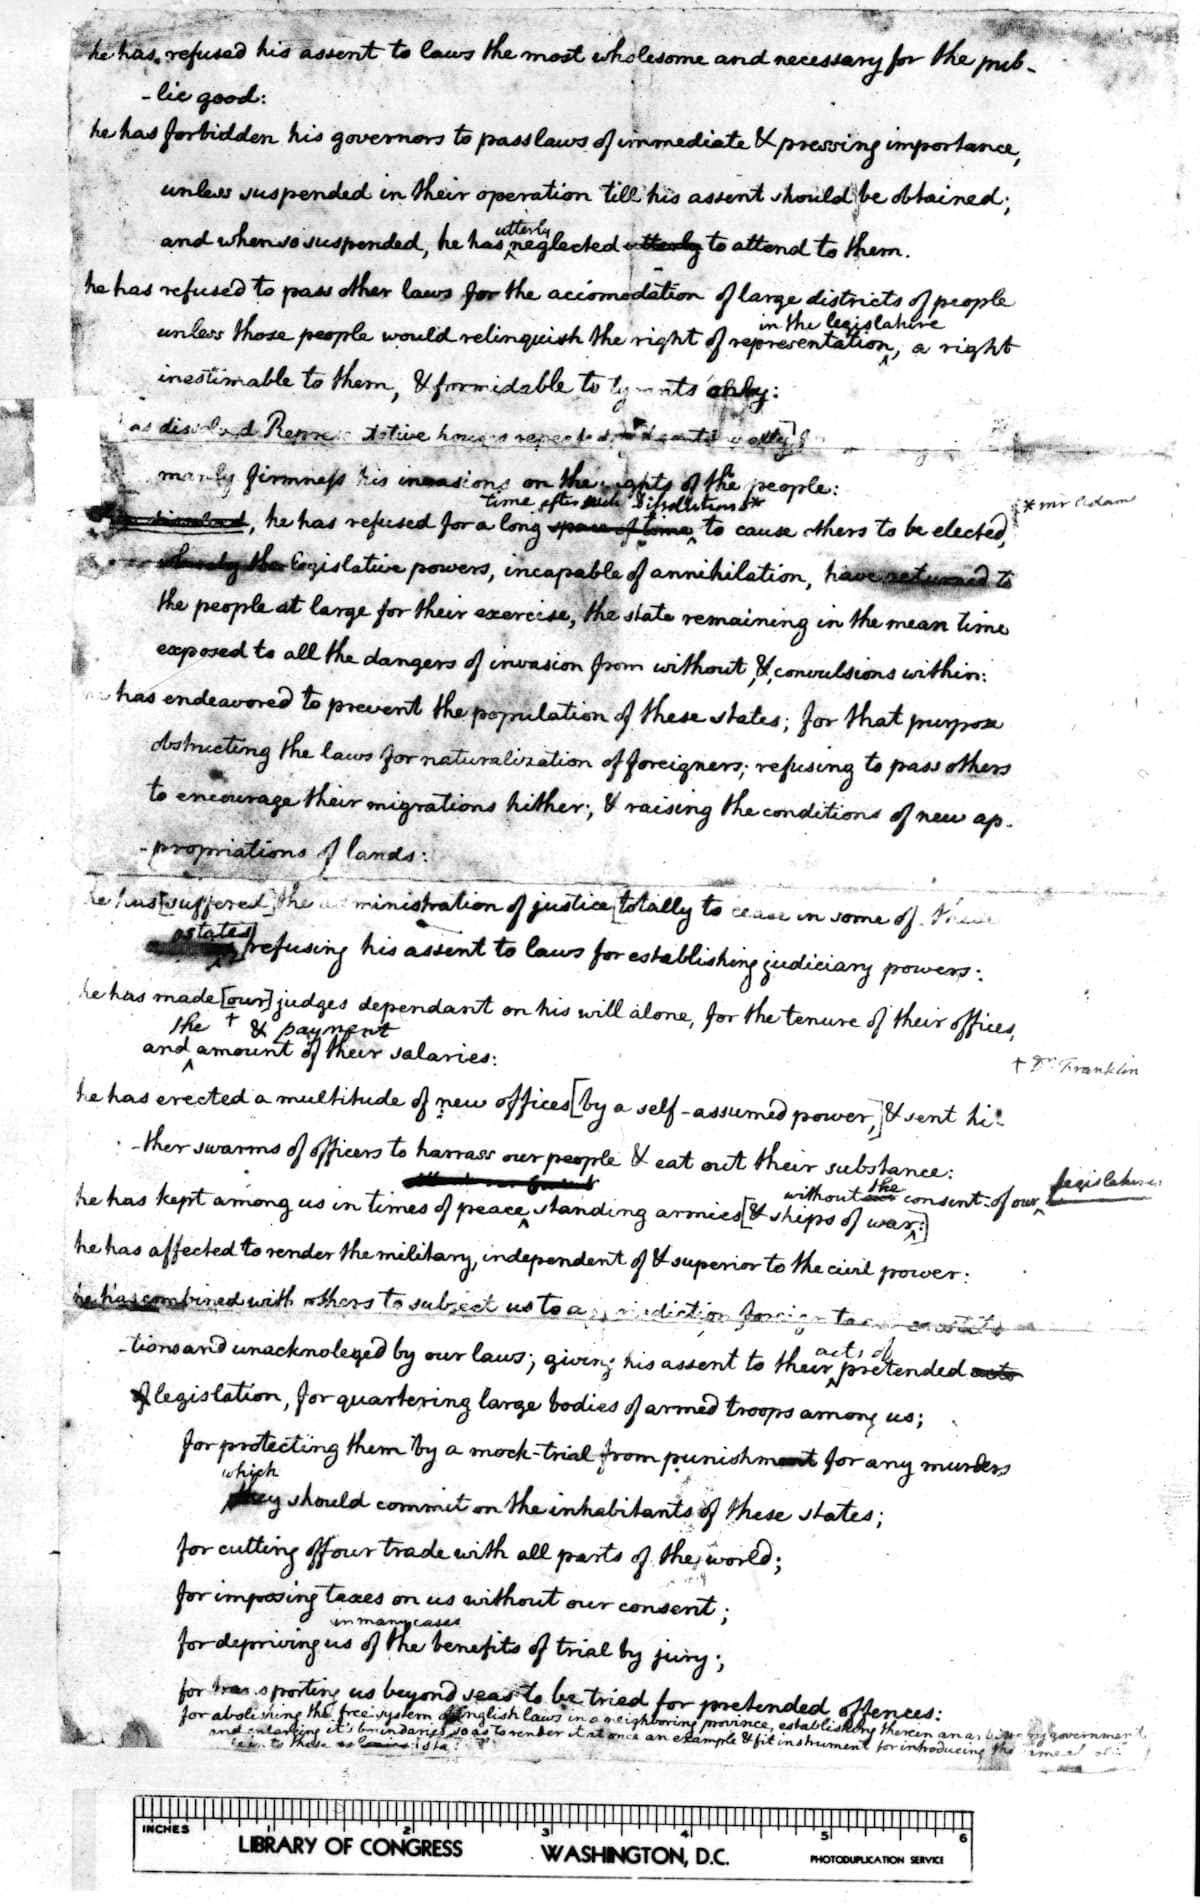 he has refused his assent to laws the most wholesome and necessary for the pub-
-lic good:
he has forbidden his governors to pass laws of immediate & pressing importance,
unless suspended in their operation till his assent should be obtained;
utterly
and when so suspended, he has neglected utterly to attend to them.
he has refused to pass other laws for the accomodation of large districts of people
in the legislature
unless those people would relinquish the right of representation, a right
inestimable to them, & formidable to tyrants only:
has dissolved Representative houses repeatedly & continually for
manly firmness his invasions on the rights of the people:
time after such Dissolutions*
* mr Adams
dissolved, he has refused for a long space of time, to cause others to be elected,
whereby the legislative powers, incapable of annihilation, have returned to
the people at large for their exercise, the state remaining in the mean time
exposed to all the dangers of invasion from without, & convulsions within:
he has endeavored to prevent the population of these states; for that purpose
obstructing the laws for naturalization of foreigners; refusing to pass others
to encourage their migrations hither; & raising the conditions of new ap-
-propriations of lands:
he has [suffered] the administration of justice [totally to cease in some of these
states]
refusing his assent to laws for establishing judiciary powers:
he has made [our] judges dependant on his will alone, for the tenure of their offices,
the † & payment
and amount of their salaries:
† Dr. Franklin
he has erected a multitude of new offices [by a self-assumed power,] & sent hi-
-ther swarms of officers to harrass our people & eat out their substance:
without the consent of our legislatures
he has kept among us in times of peace, standing armies [& ships of war:]
he has affected to render the military, independent of & superior to the civil power:
he has combined with others to subject us to a jurisdiction foreign to our constitu-
-tions and unacknoleged by our laws; giving his assent to their pretended acts
acts of
of legislation, for quartering large bodies of armed troops among us;
for protecting them by a mock-trial from punishment for any murders
which
they should commit on the inhabitants of these states;
for cutting off our trade with all parts of the world;
for imposing taxes on us without our consent;
in many cases
for depriving us of the benefits of trial by jury;
for transporting us beyond seas to be tried for pretended offences:
for abolishing the free system of English laws in a neighboring province, establishing therein an arbitrary government
and enlarging it's boundaries so as to render it at once an example & fit instrument for introducing the same
into these states:
INCHES 1 2 3 4 5 6
LIBRARY OF CONGRESS WASHINGTON, D.C. PHOTODUPLICATION SERVICE